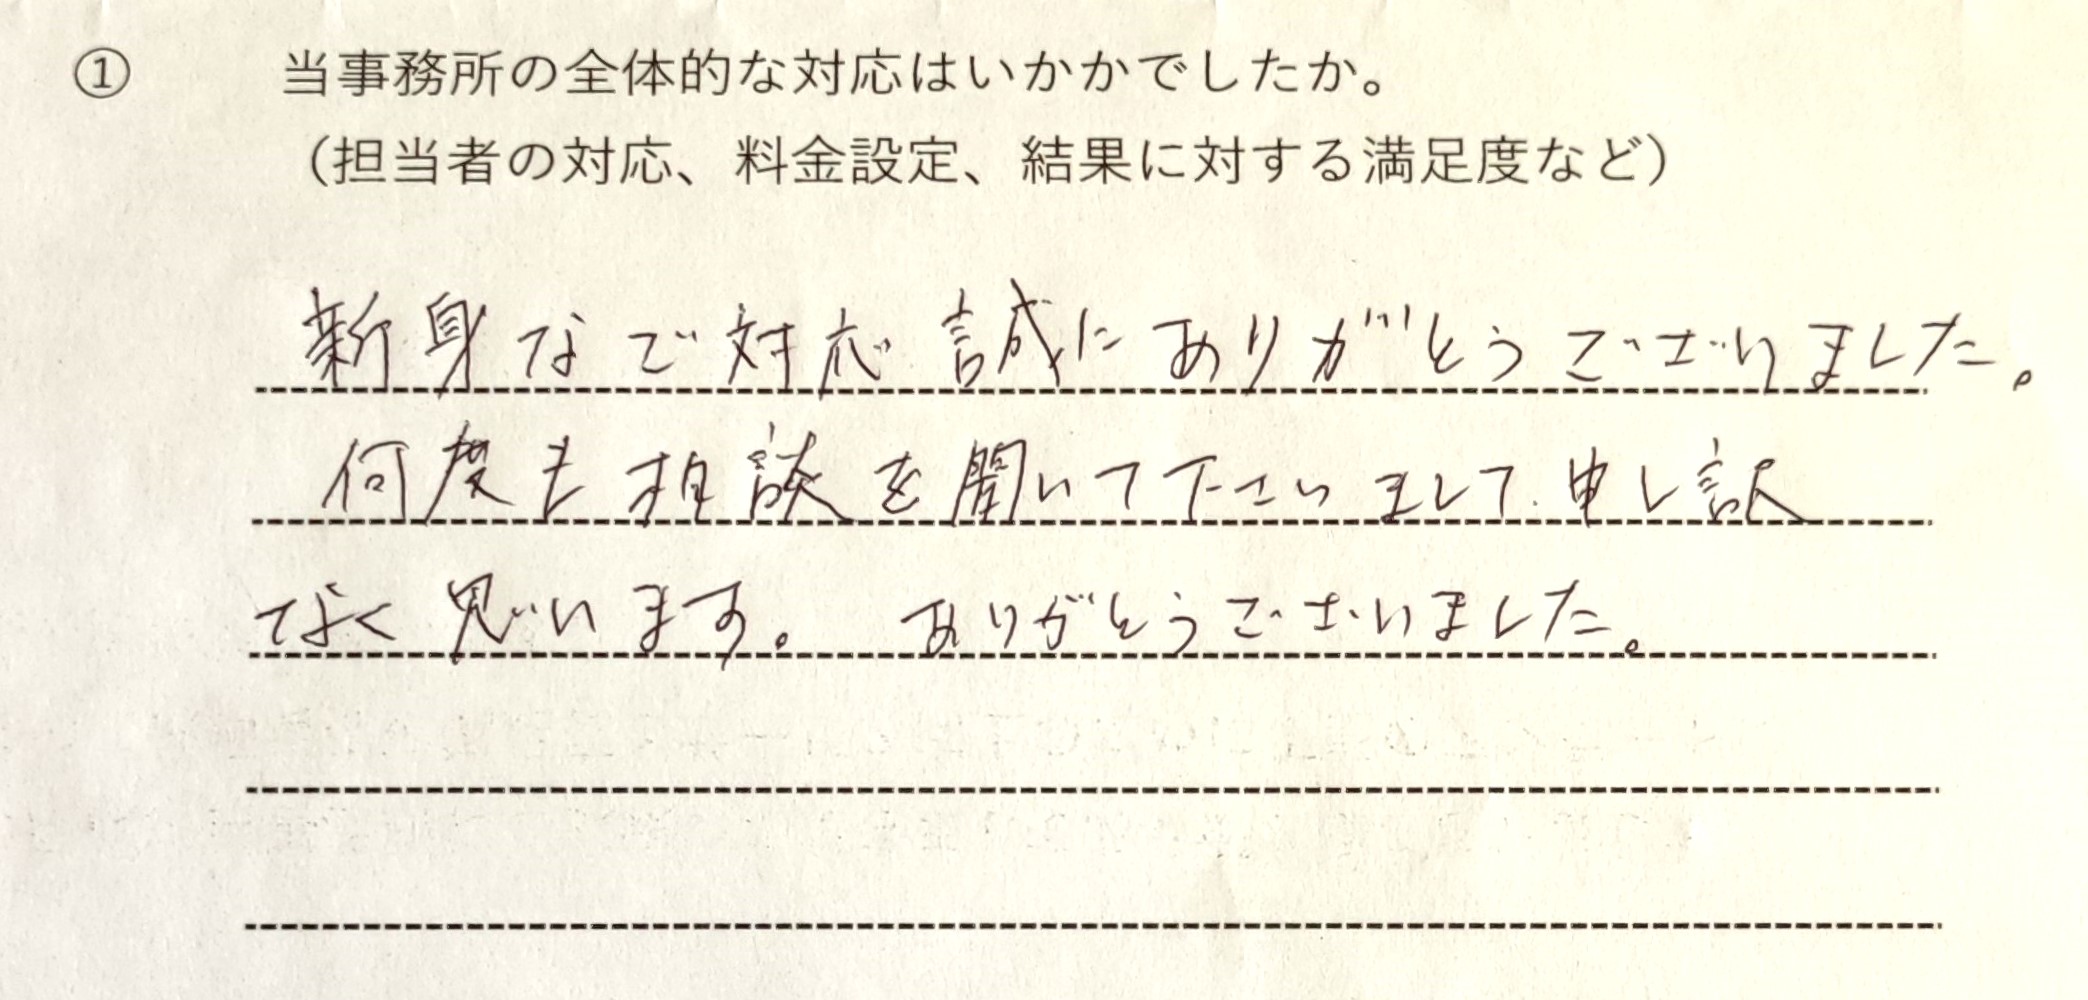 ① 当事務所の全体的な対応はいかかでしたか。
（担当者の対応、料金設定、結果に対する満足度など）
新身なご対応誠にありがとうございました。
何度も相談を聞いて下さいまして、申し訳
なく思います。 ありがとうございました。